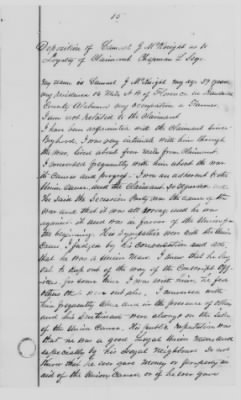 15
Deposition of Samuel J. McKnight as to
Loyalty of Claimant Chapman L
My name is Samuel J. McKnight my age 37 years
my residence 14 Miles N W of Florence in Lauderdale
County Alabama my occupation a Farmer.
I am not related to the Claimant
I have been acquainted with the Claimant since
Boyhood, I was very intimate with him through
the War, lived about four miles from Claimant.
I conversed frequently with him about the war
its Causes and progress. I was an adherent to the
Union Cause, and the Claimant so regarded me
He said the Secession Party was the cause of the
War and that it was all wrong and he was
against it and was in favor of the Union from
the beginning. His Sympathies were with the Union
Cause I judged by his conversation and acts
that he was a Union Man I knew that he lay
out to keep out of the way of the Conscript Offi-
cers for some time. I was with him, he and
others
him frequently alone and in the presence of others
and his Sentiments were always on the side
of the Union Cause. His public reputation was
that he was a good Loyal Union man and
especially by his Loyal Neighbors. Do not
know that he ever gave money or property in
aid of the Union Cause or if he ever gave